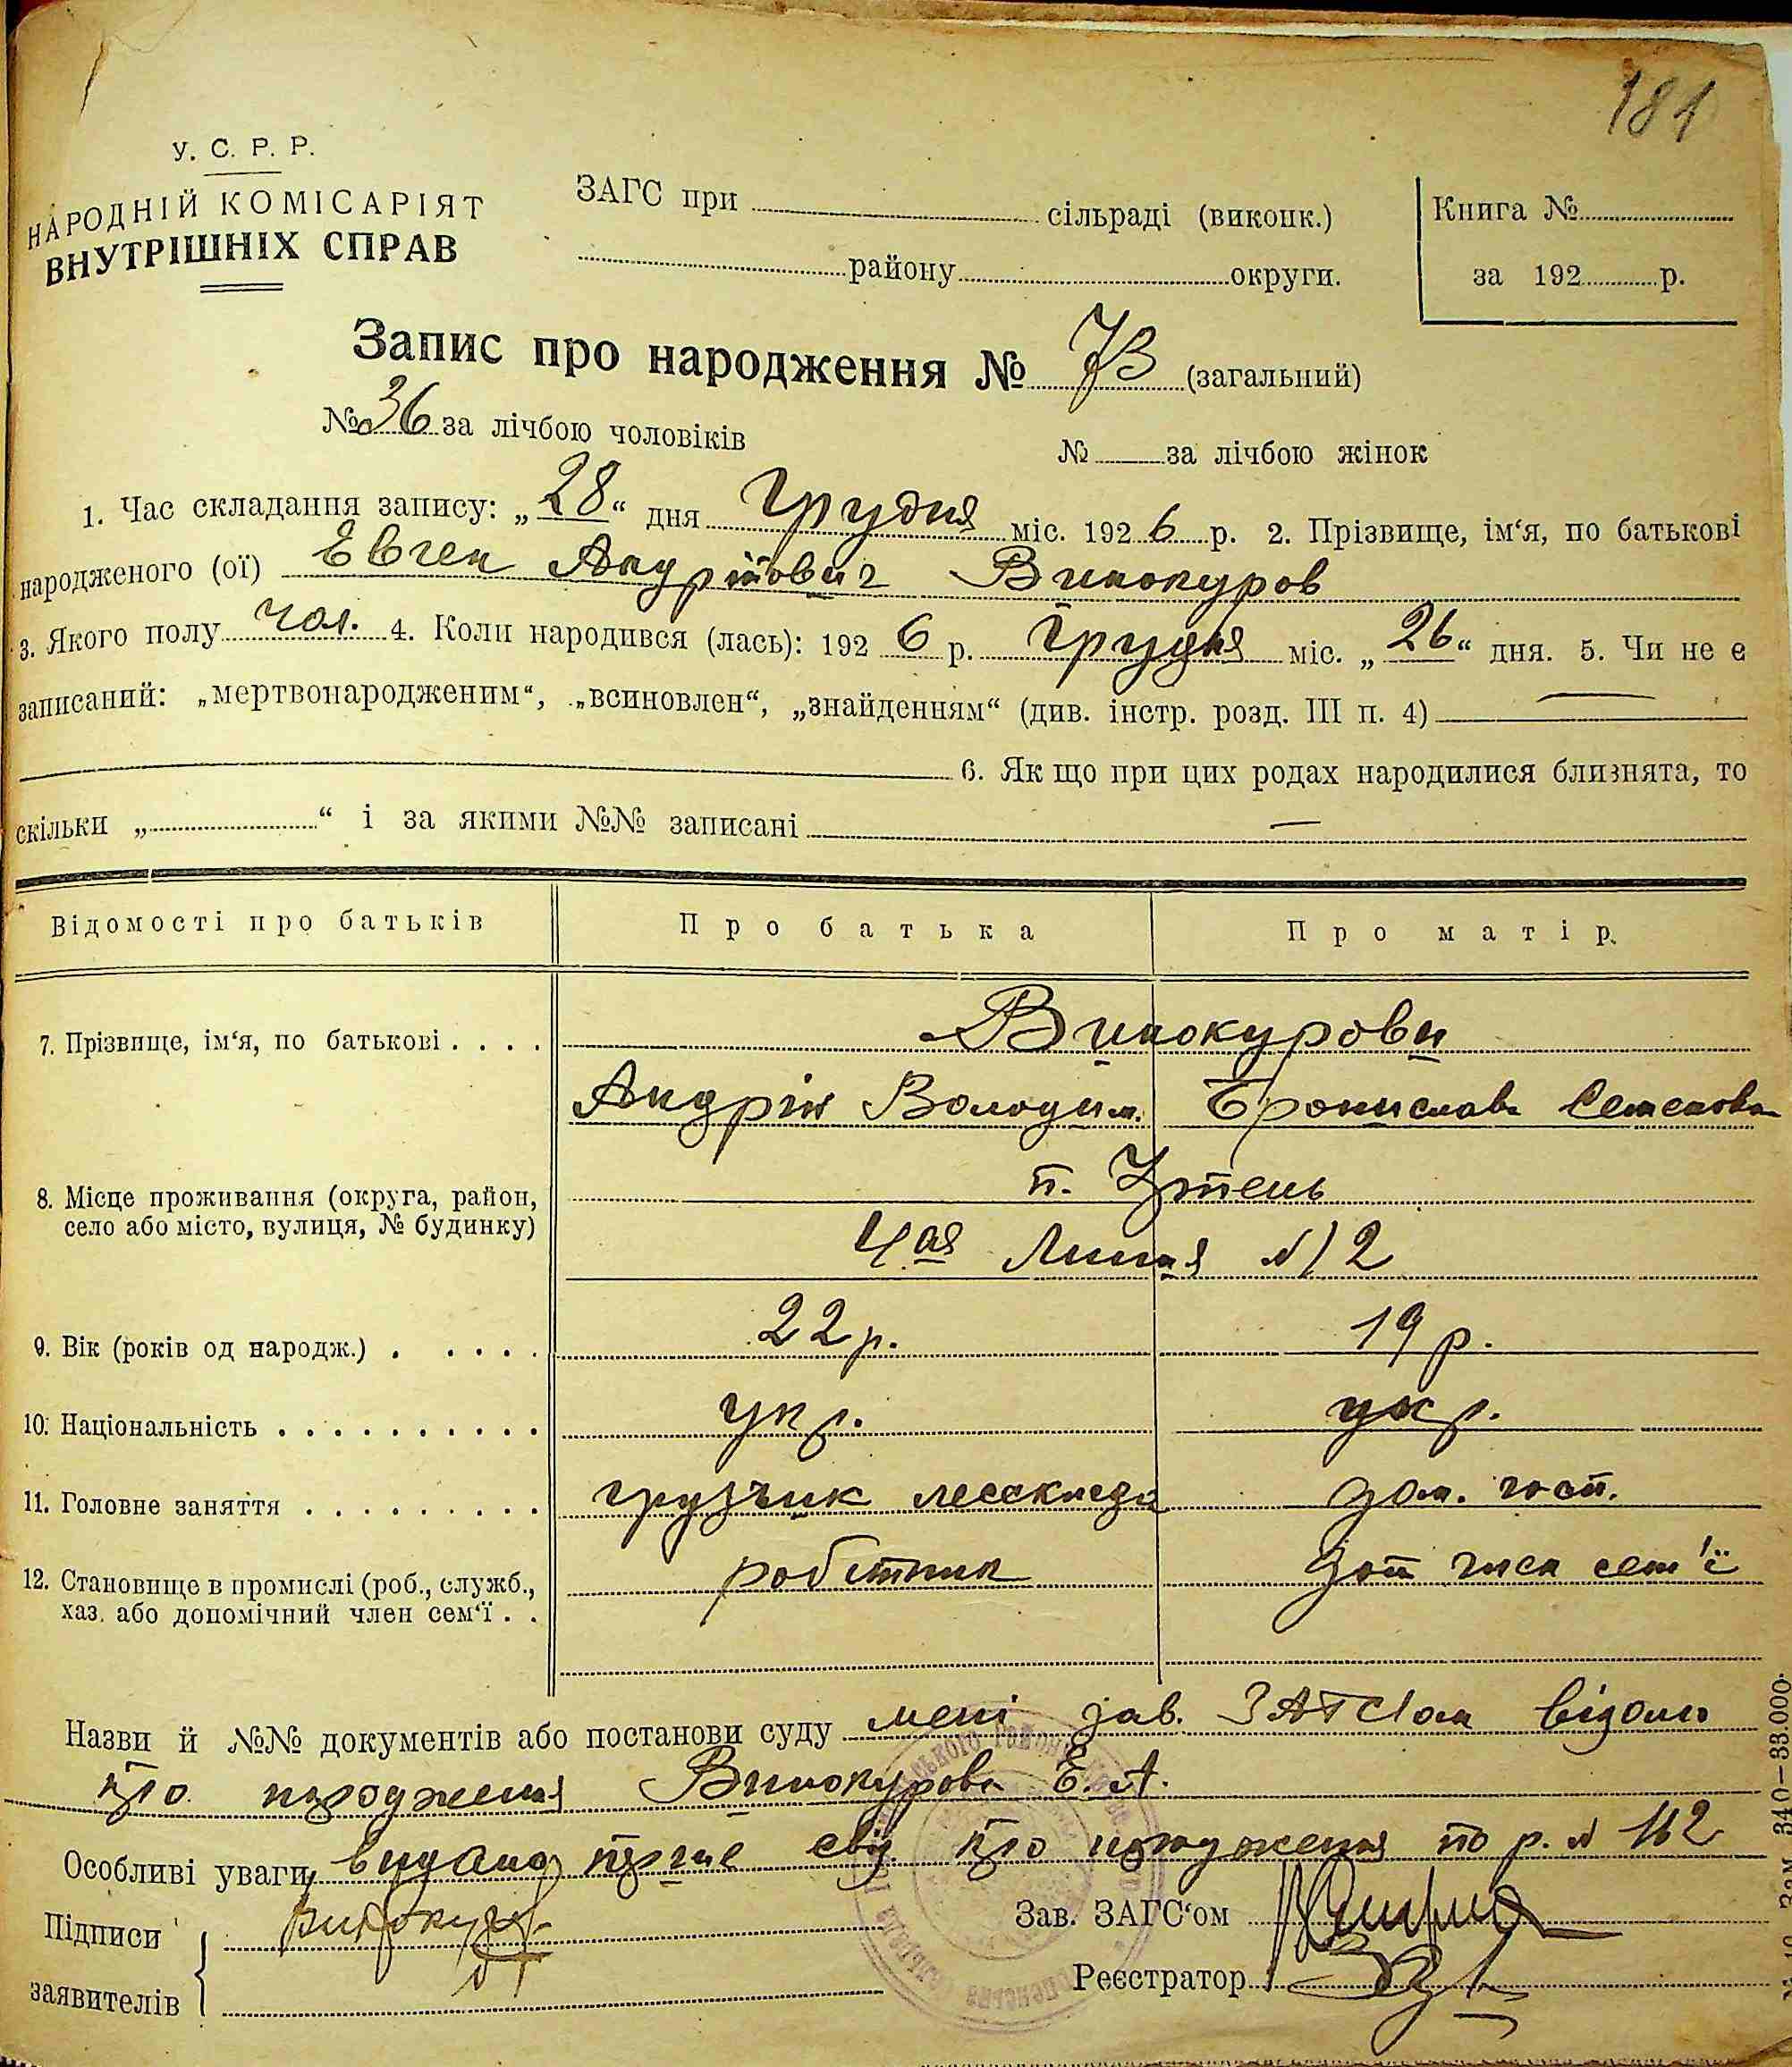 181
У. С. Р. Р.
НАРОДНІЙ КОМІСАРІЯТ
ВНУТРІШНІХ СПРАВ
ЗАГС при сільраді (виконк.)
району округи.
Книга №
за 192 р.
Запис про народження № 73 (загальний)
№ 36 за лічбою чоловіків № за лічбою жінок
1. Час складання запису: „28“ дня Грудня міс. 1926 р. 2. Прізвище, ім‘я, по батькові
народженого (ої) Евген Андрійович Винокуров
3. Якого полу чол. 4. Коли народився (лась): 1926 р. Грудня міс. „26“ дня. 5. Чи не є
записаний: „мертвонародженим“, „всиновлен“, „знайденням“ (див. інстр. розд. III п. 4) —
6. Як що при цих родах народилися близнята, то
скільки „ “ і за якими №№ записані —
Відомості про батьків Про батька Про матір.
7. Прізвище, ім‘я, по батькові . . . . Винокурови
Андрій Володим. Бронислава Семенова
8. Місце проживання (округа, район,
село або місто, вулиця, № будинку)
п. Ірпень
4ая Линия № 2
9. Вік (років од народж.) . . . . . 22 р. 19 р.
10. Національність . . . . . . . . . . укр. укр.
11. Головне заняття . . . . . . . . . грузчик лесклада дом. госп.
12. Становище в промислі (роб., служб.,
хаз. або допомічний член сем‘ї . .
робітник доп член сем'ї
Назви й №№ документів або постанови суду мені зав. ЗАГСом відомо
про народження Винокурова Е. А.
Особливі уваги видано перше свід. про народження по р. № 162
Підписи
заявителів
Винокур
Зав. ЗАГС‘ом
Реєстратор
340—33.000.